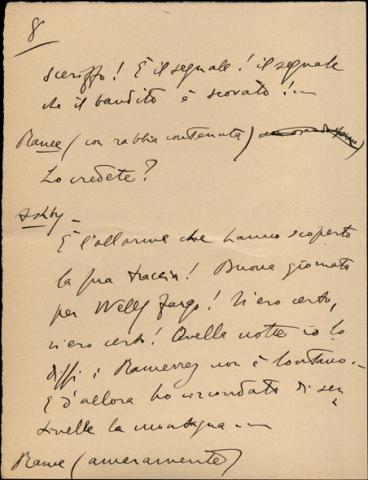 8
sceriffo! È il segnale! il segnale
che il bandito è scovato! —
Rance (con rabbia contenuta)
Lo credete?
Ashby —
È l'allarme che hanno scoperto
la sua traccia! Buona giornata
per Welly Fargo! N'ero certo,
n'ero certo! Quella notte io lo
dissi: Ramerrez non è lontano. —
E d'allora ho circondato di sen
tinelle la montagna —
Rance (amaramente)